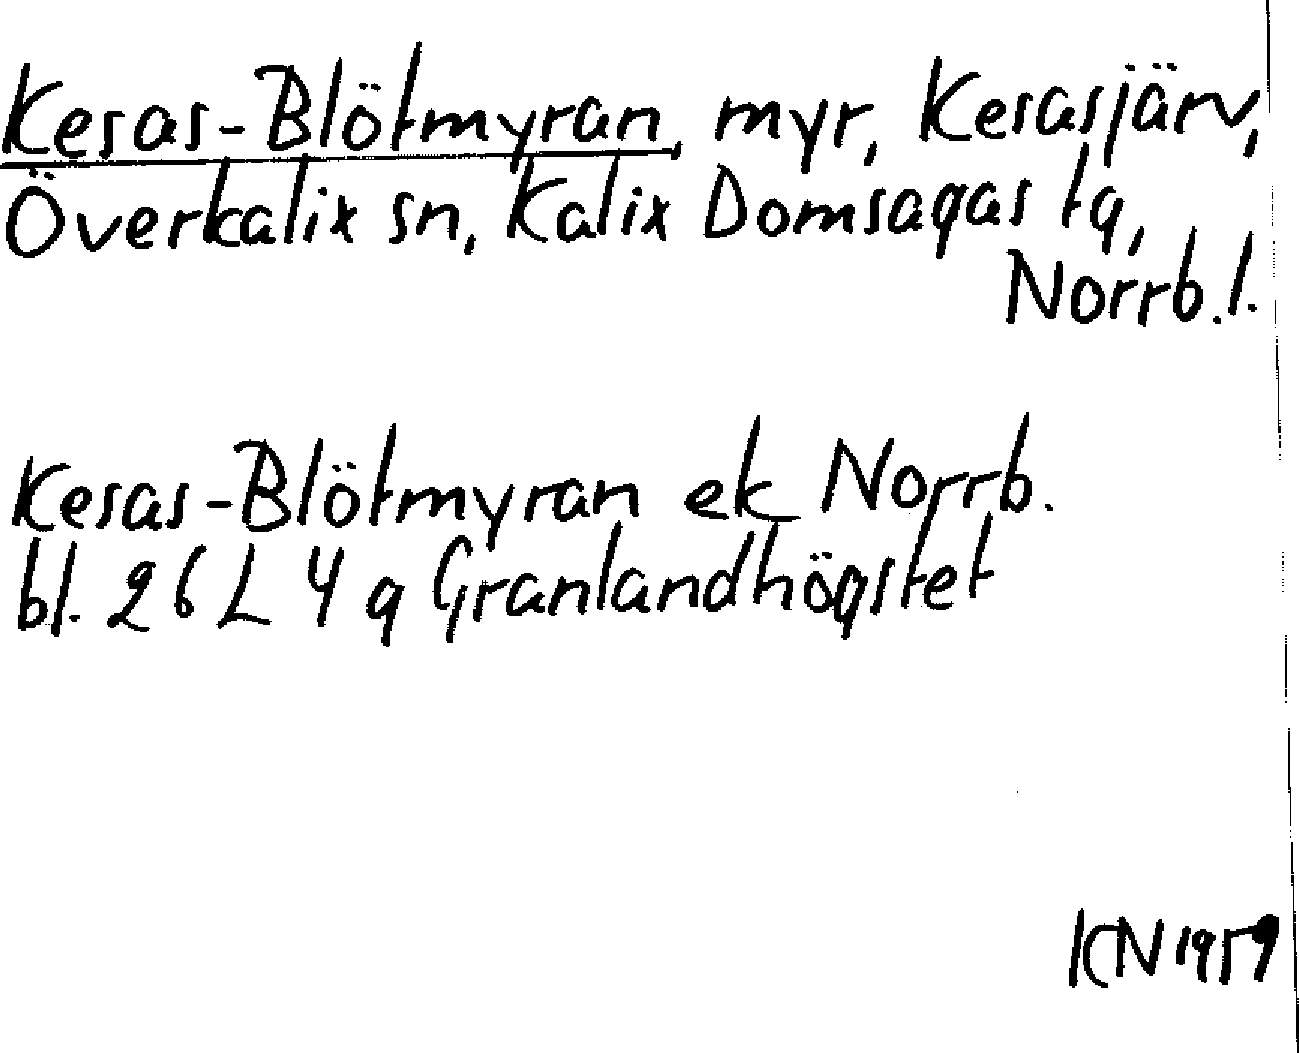 Kesas-Blötmyran, myr, Kesasjärv,
Överkalix sn, Kalix Domsagas tg,
Norrb.l.
Kesas-Blötmyran ek Norrb.
bl. 26 L 4 g Granlandhögstet
KN 1959